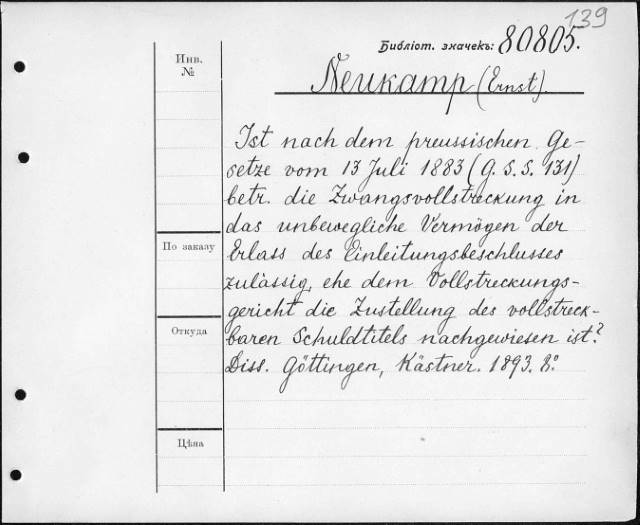 139
Библіот. значекъ: 80805.
Инв.
№
Neukamp (Ernst).
Ist nach dem preussischen Ge-
setze vom 13 Juli 1883 (G. S. S. 131)
betr. die Zwangsvollstreckung in
das unbewegliche Vermögen der
Erlass des Einleitungsbeschlusses
zulässig, ehe dem Vollstreckungs-
gericht die Zustellung des vollstreck-
baren Schuldtitels nachgewiesen ist?
Diss. Göttingen, Kästner. 1893. 8°.
По заказу
Откуда
Цѣна